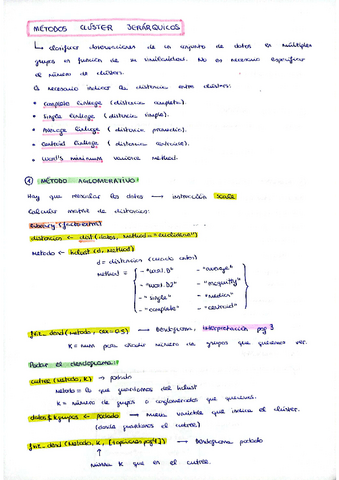 MÉTODOS CLÚSTER JERÁRQUICOS
↳ clasificar observaciones de un conjunto de datos en múltiples
grupos en función de su similaridad. No es necesario especificar
el número de clústers.
Es necesario indicar la distancia entre clústers:
• Complete linkage (distancia completa).
• Single linkage (distancia simple).
• Average linkage (distancia promedio).
• Centroid linkage (distancia centroide).
• Ward's minimum variance method.
① MÉTODO AGLOMERATIVO:
Hay que reescalar los datos → instrucción scale
Calcular matriz de distancias:
library(factoextra)
distancias <- dist(datos, method="euclidean")
método <- hclust(d, method)
d = distancias (cuadro antes)
method = - "ward.D" - "average"
- "ward.D2" - "mcquitty"
- "single" - "median"
- "complete" - "centroid"
fviz_dend(método, cex=0.5) → Dendograma, interpretación pag 3
K = num para añadir número de grupos que queremos ver.
Podar el dendograma:
cutree(método, K) → podado
método = lo que guardamos del hclust
K = número de grupos o conglomerados que queremos.
datos$kgrupos <- podado → nueva variable que indica el clúster.
(donde guardamos el cutree)
fviz_dend(método, K, [opciones pag 4]) → Dendograma podado
misma K que en el cutree.